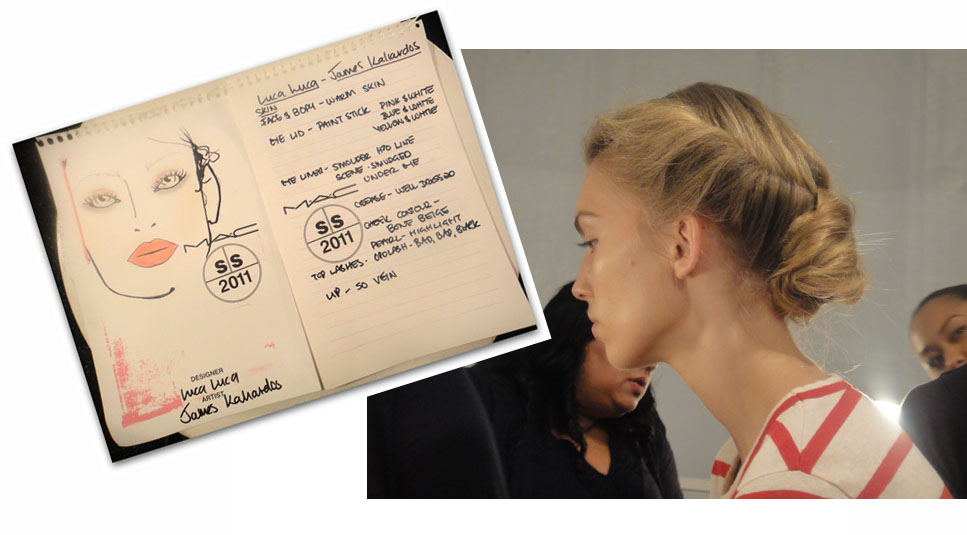 MAC
S|S
2011
DESIGNER
Luca Luca
ARTIST
James Kaliardos
Luca Luca - James Kaliardos
SKIN
FACE & BODY - WARM SKIN
EYE LID - PAINT STICK PINK & WHITE
BLUE & WHITE
YELLOW & WHITE
EYE LINER - SMOULDER INTO LINE
SCENE - SMUDGED
UNDER EYE
MAC
CREASE - WELL DRESSED
S|S
2011
CHEEK CONTOUR -
BONE BEIGE
PEARL - HIGHLIGHT
TOP LASHES - OPULASH - BAD, BAD, BLACK
LIP - SO VEIN